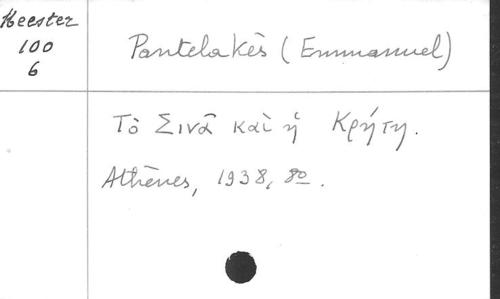 Meester
100
6
Pantelakès (Emmanuel)
Τὸ Σινᾶ καὶ ἡ Κρήτη.
Athènes, 1938, 8º.